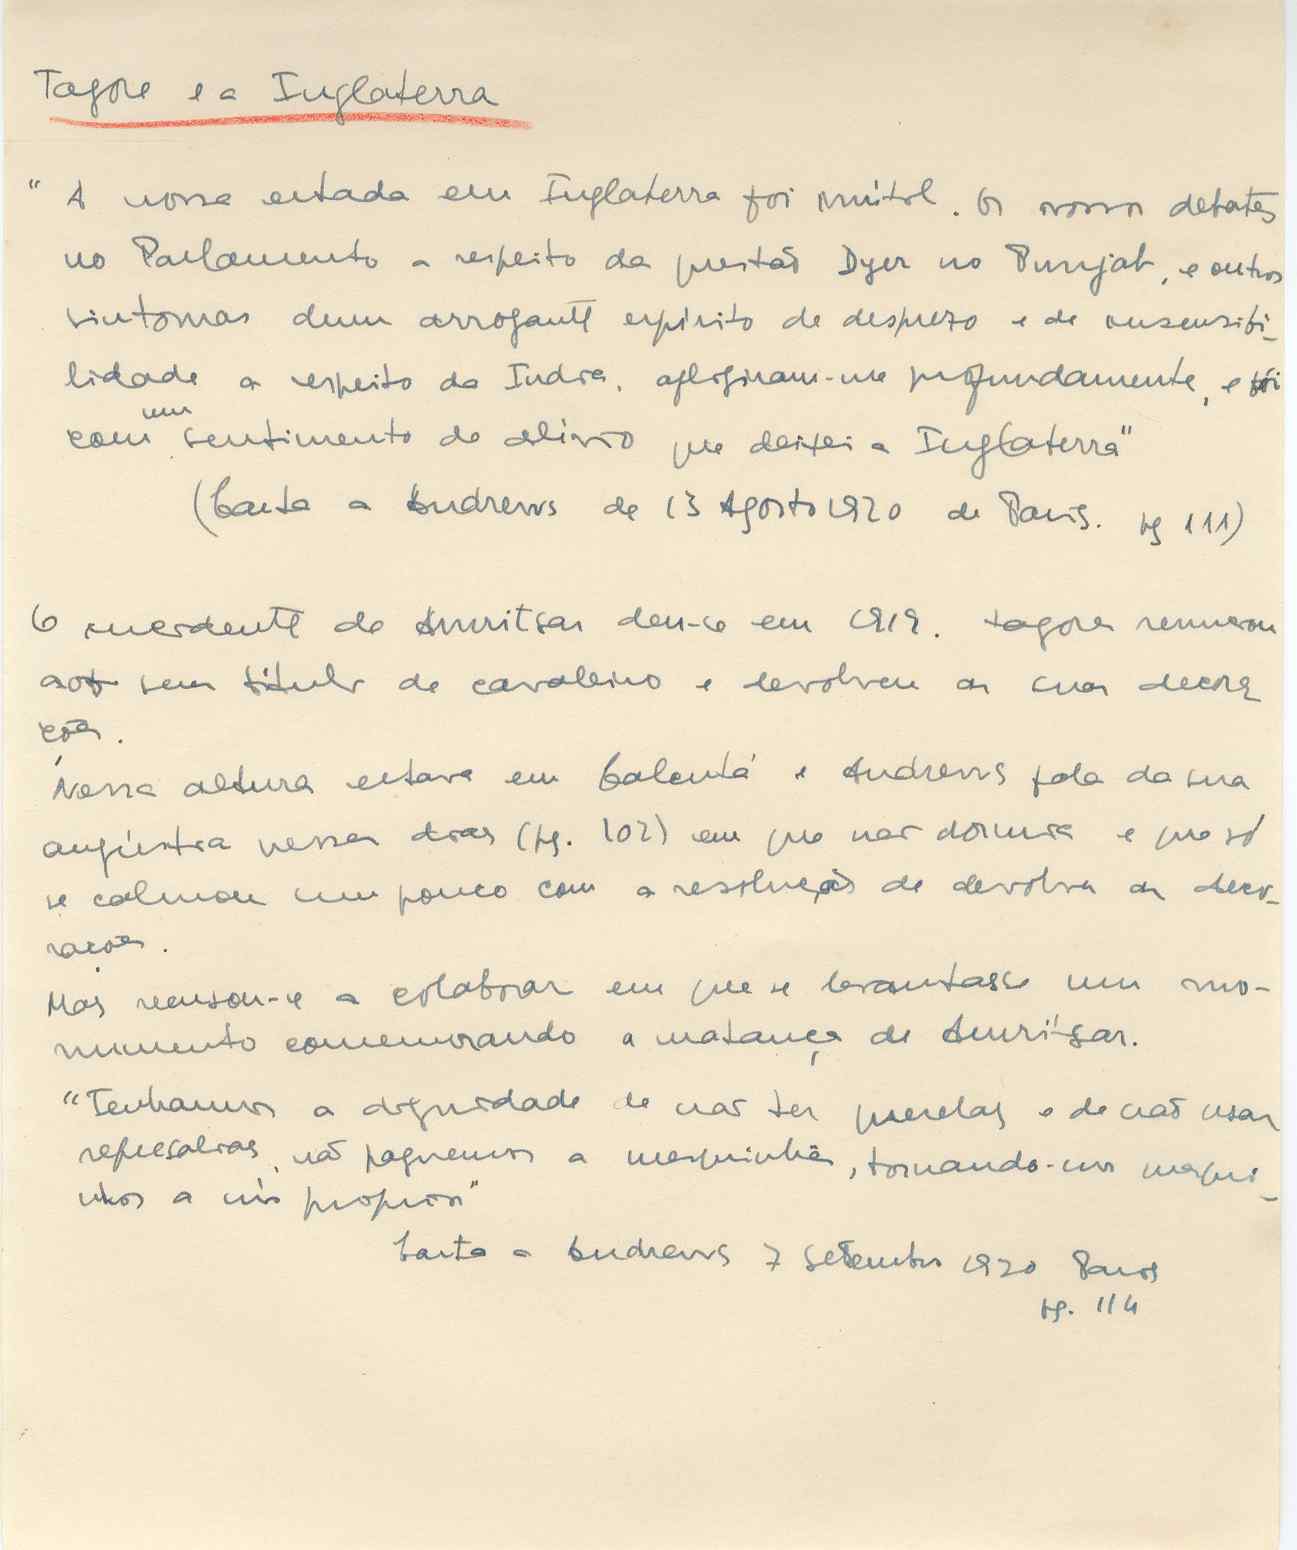 Tagore e a Inglaterra
"A nossa estada em Inglaterra foi inútil. Os nossos debates
no Parlamento a respeito da questão Dyer no Punjab, e outros
sintomas dum arrogante espírito de desprezo e de insensibi-
lidade a respeito da India, afligiram-me profundamente, e foi
com um sentimento de alívio que deixei a Inglaterra"
(Carta a Andrews de 13 Agosto 1920 de Paris. pg 111)
O incidente de Amritsar deu-se em 1919. Tagore renunciou
seu título de cavaleiro e devolveu as suas decora
ções.
Nessa altura estava em Calcutá e Andrews fala da sua
angústia nesses dias (pg. 102) em que não dormia e que só
se calmou um pouco com a resolução de devolver as deco-
rações.
Mas recusou-se a colaborar em que se levantasse um mo-
numento comemorando a matança de Amritsar.
"Tenhamos a dignidade de não ter querelas e de não usar
represalias, não paguemos a mesquinhês, tornando-nos mesqui-
nhos a nós proprios"
Carta a Andrews 7 Setembro 1920 Paris
pg. 114